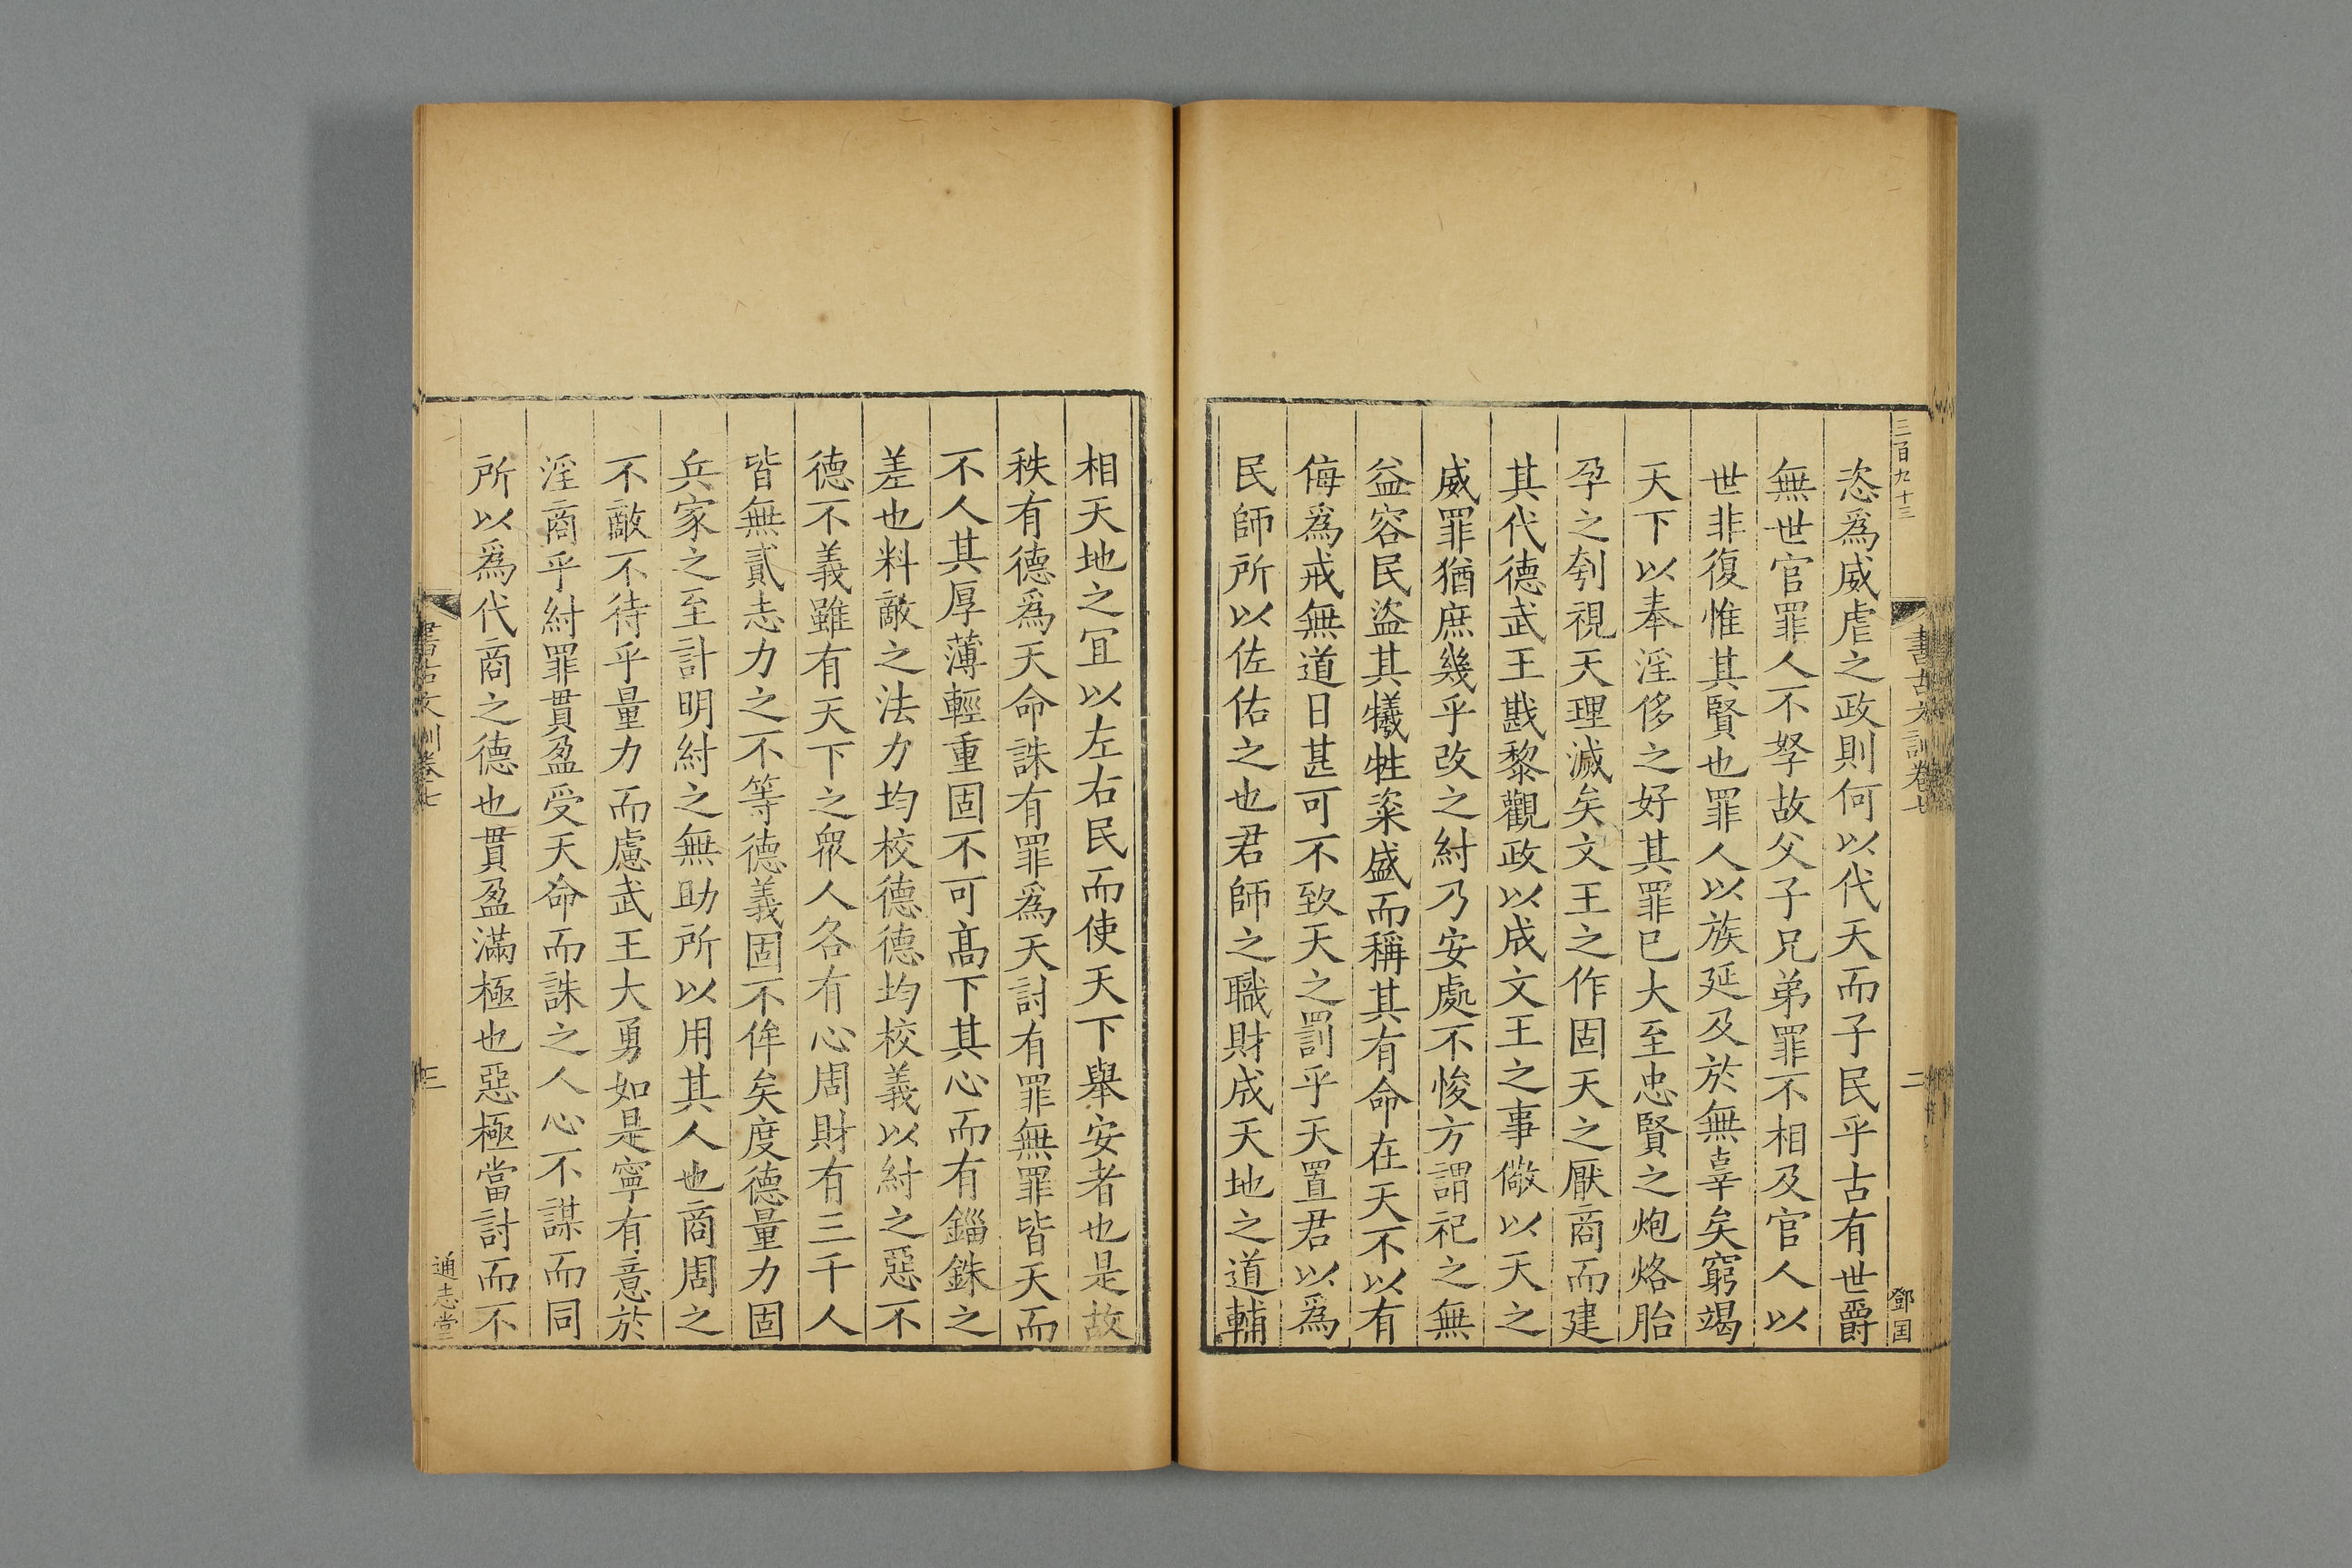 三百九十三
書古文訓卷七
二
鄧国
恣爲威虐之政則何以代天而子民乎古有世爵
無世官罪人不孥故父子兄弟罪不相及官人以
世非復惟其賢也罪人以族延及於無辜矣窮竭
天下以奉淫侈之好其罪已大至忠賢之炮烙胎
孕之刳視天理滅矣文王之作固天之厭商而建
其代德武王戡黎觀政以成文王之事儆以天之
威罪猶庶幾乎改之紂乃安處不悛方謂祀之無
益容民盜其犧牲粢盛而稱其有命在天不以有
侮爲戒無道日甚可不致天之罰乎天置君以爲
民師所以佐佑之也君師之職財成天地之道輔
相天地之宜以左右民而使天下舉安者也是故
秩有德爲天命誅有罪爲天討有罪無罪皆天而
不人其厚薄輕重固不可高下其心而有錙銖之
差也料敵之法力均校德德均校義以紂之惡不
德不義雖有天下之眾人各有心周財有三千人
皆無貳志力之不等德義固不侔矣度德量力固
兵家之至計明紂之無助所以用其人也商周之
不敵不待乎量力而慮武王大勇如是寧有意於
淫商乎紂罪貫盈受天命而誅之人心不謀而同
所以爲代商之德也貫盈滿極也惡極當討而不
書古文訓卷七
三
通志堂